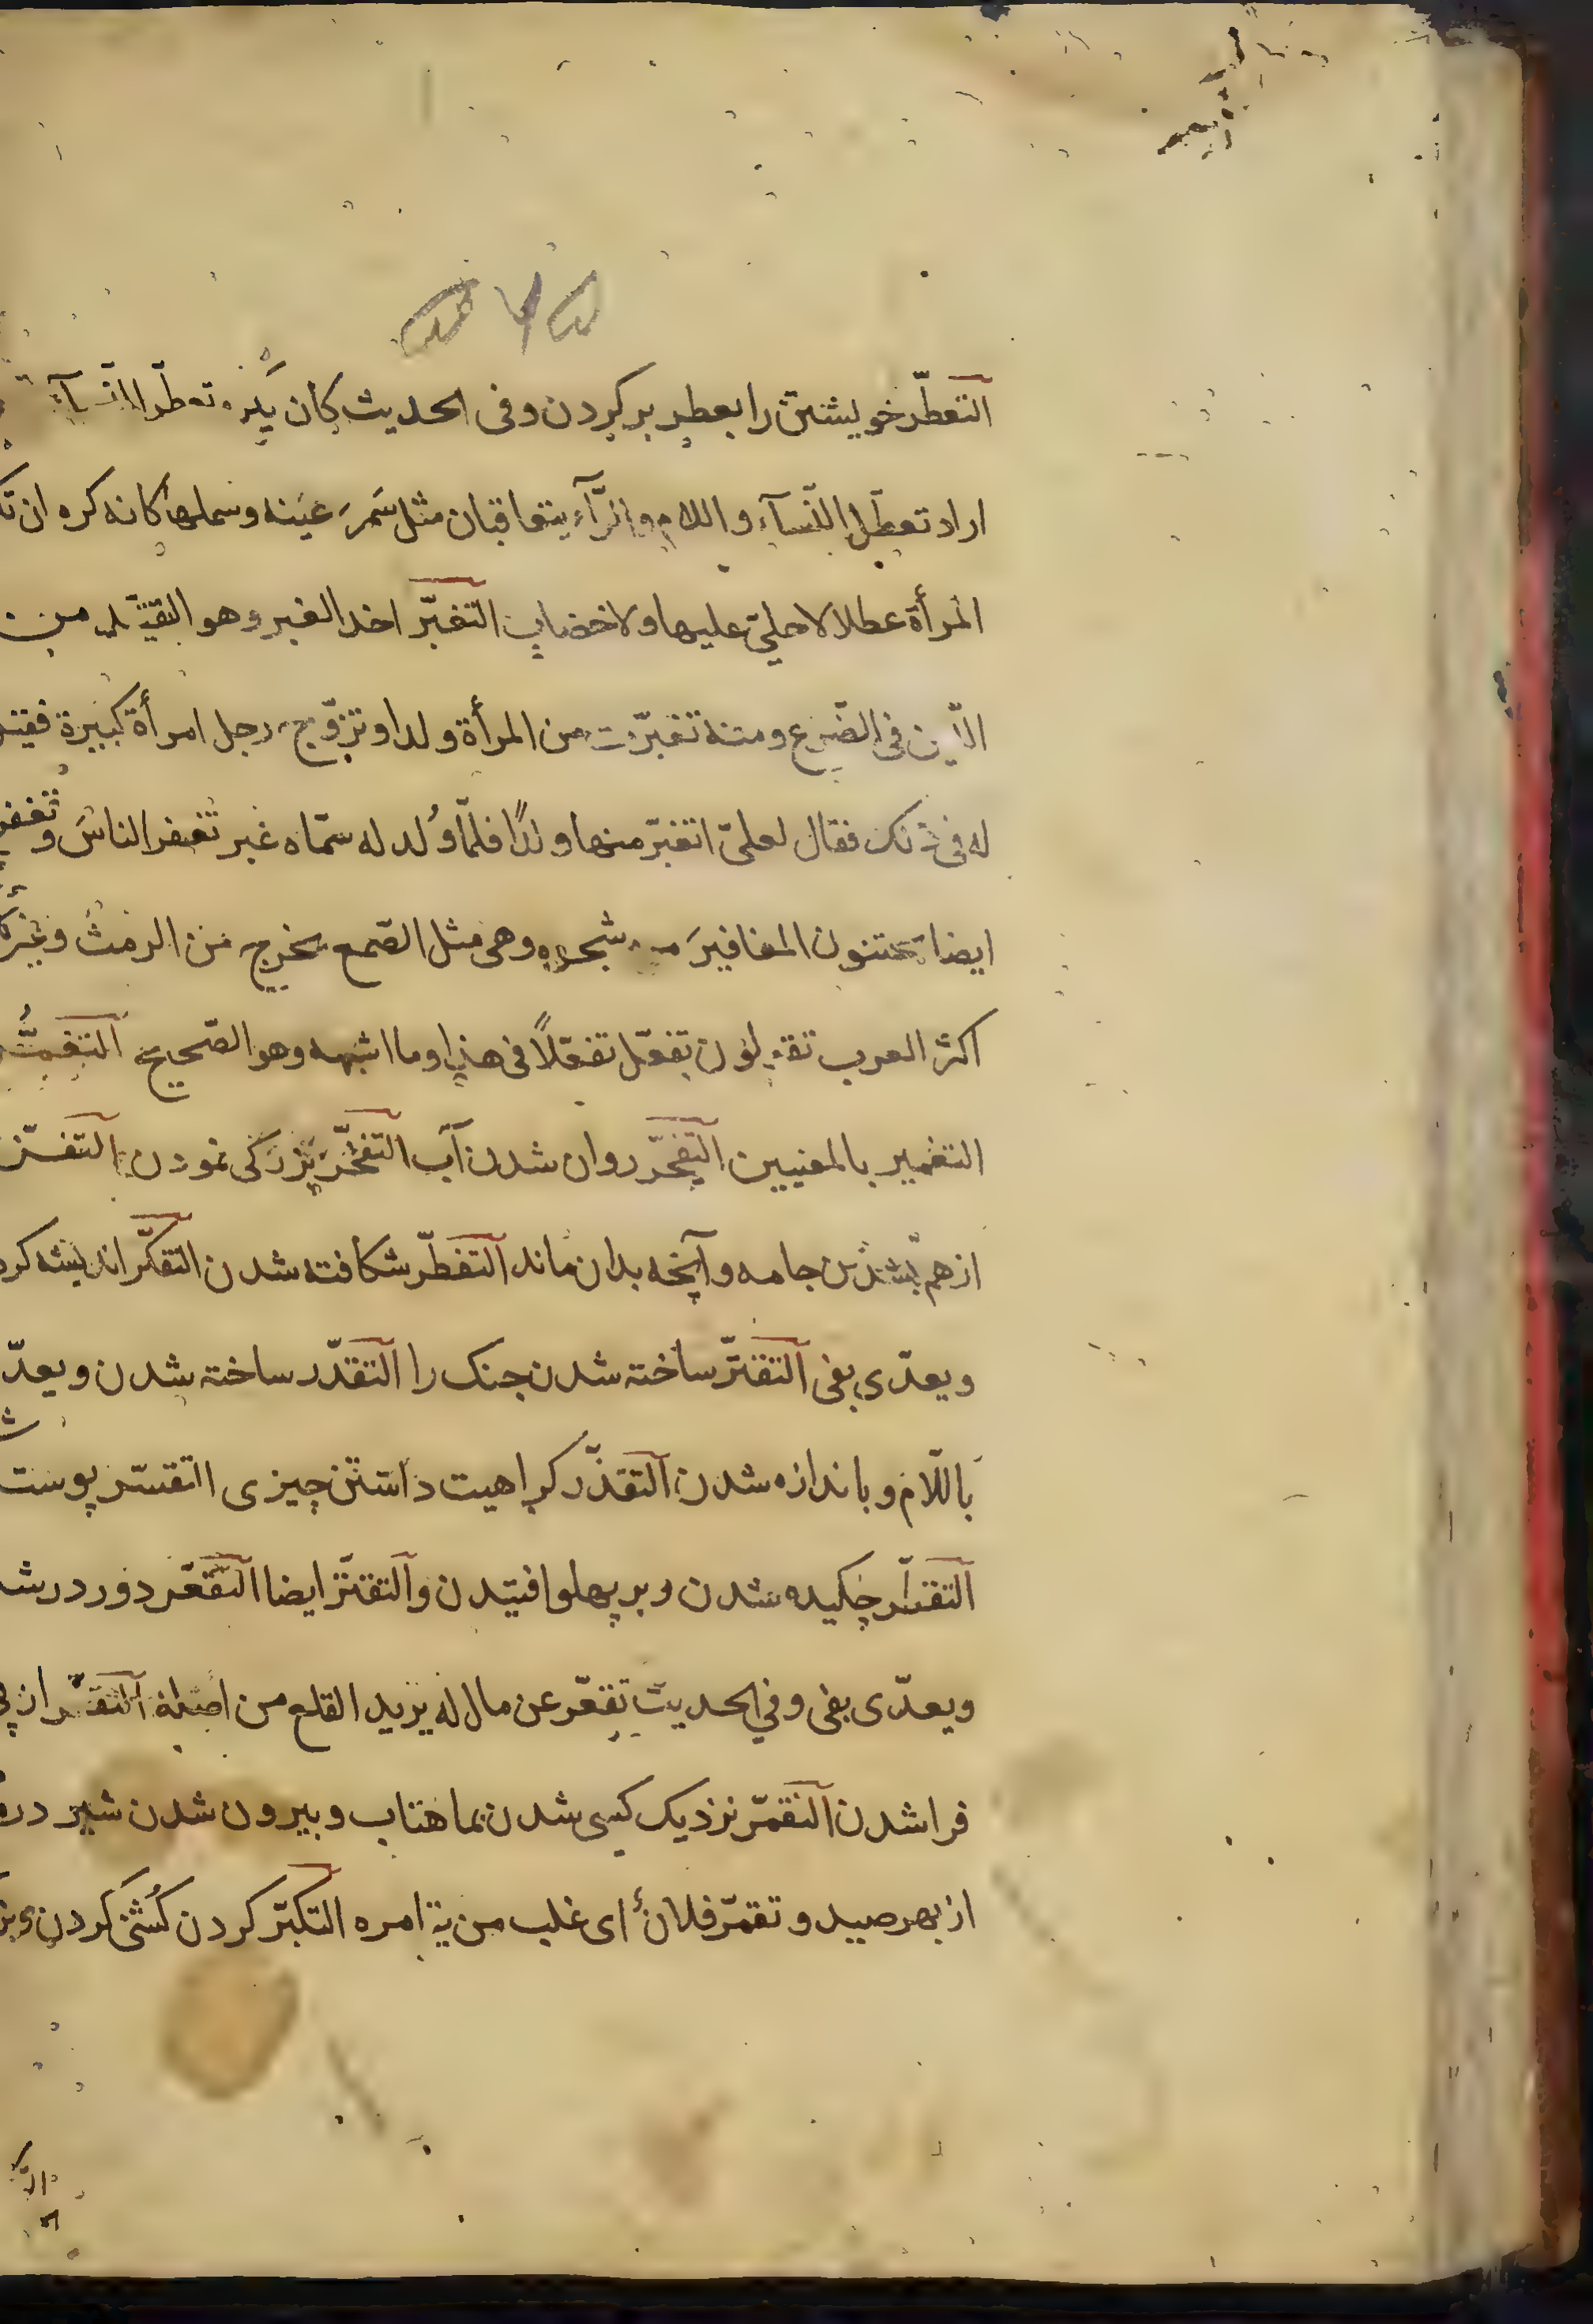 التعطّر خويشتن را بعطر بر كردن وفى الحديث كان يكره تعطّر النّسآء
اراد تعطّل النّسآء واللام والرّآء يتعاقبان مثل سَمرَ عَينه وسملها كانه كره ان
المرأة عطلا لا حلىّ عليها ولا خضاب التغبّر اخذ الغبر وهو البقيّة من
اللّبن فى الضّرع ومنه تغبّرت من المرأة ولدا وتزوّج رجل امرأة كبيرة فقيل
له فى ذلك فقال لعلىّ اتغبّر منها ولدًا فلمّا وُلد له سمّاه غبر تغفر الناسَ و
ايضا يجتنون المغافيرَ من شجره وهى مثل الصّمغ يخرج من الرمث
اكثر العرب يقولون تفعّل تفعّلاً فى هذا وما اشبهه وهو الصّحيح
التغمير بالمعنيين التّفجّر روان شدن آب التّفخّر بزركى نمودن
ازهم بشدن جامه وآنچه بدان ماند التفطّر شكافته شدن التفكّر انديشه
ويعدّى بفى التقتّر ساخته شدن جنك را التقدّر ساخته شدن
باللّام و باندازه شدن التقذّر كراهيت داشتن چيزى التقشّر پوست
التقطّر چكيده شدن و بر پهلو افتيدن والتقتّر ايضا التقعّر دور در
ويعدّى بفى وفى الحديث تقعّر عن مال له يريد القلع من اصله
فرا شدن التقمّر نزديك كسى شدن بماهتاب و بيرون شدن شير
از بهر صيد و تقمّر فلانٌ اى غلب من امره التكبّر كردن كشى كردن